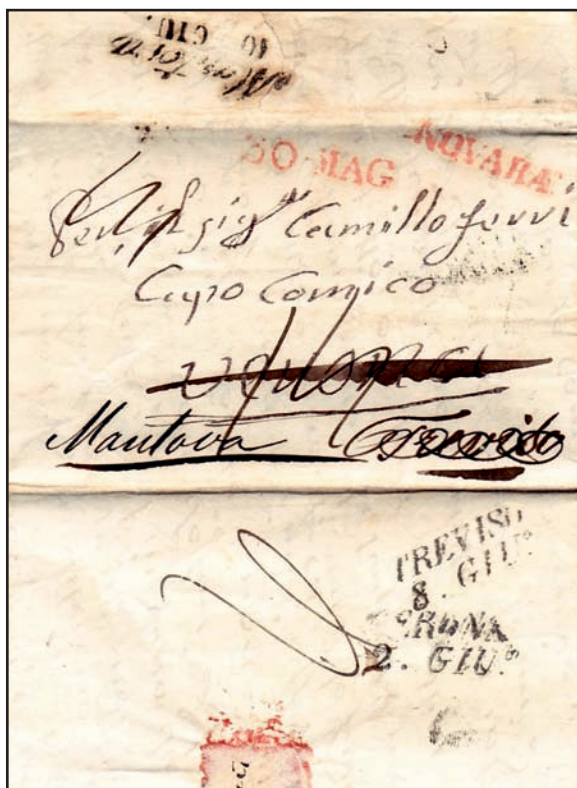 Mantova
10
GIU.
30 MAG
NOVARA
sigʳ Camillo ferri
Capo Comico
Mantova Treviso
TREVISO
8. GIUº
VERONA
2. GIUº